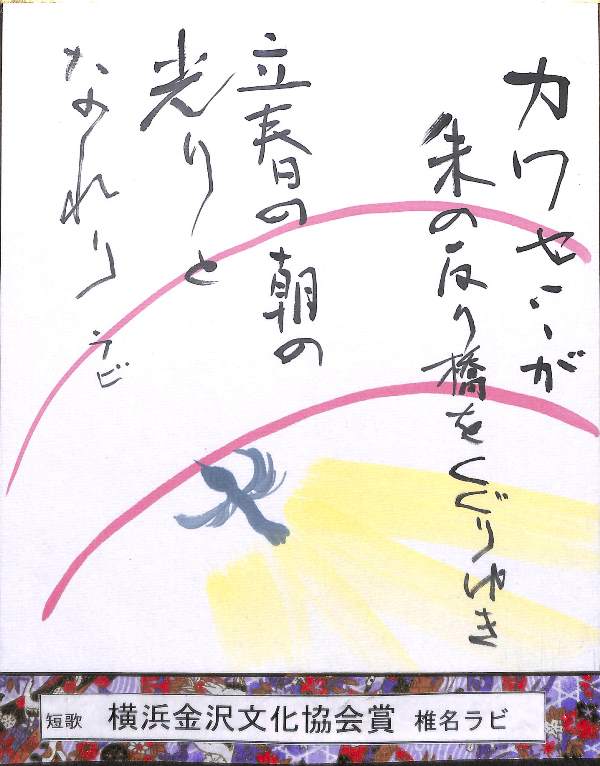 カワセミが
朱の反り橋をくぐりゆき
立春日の朝の
光りと
なれり
ラビ
短歌 横浜金沢文化協会賞 椎名ラビ